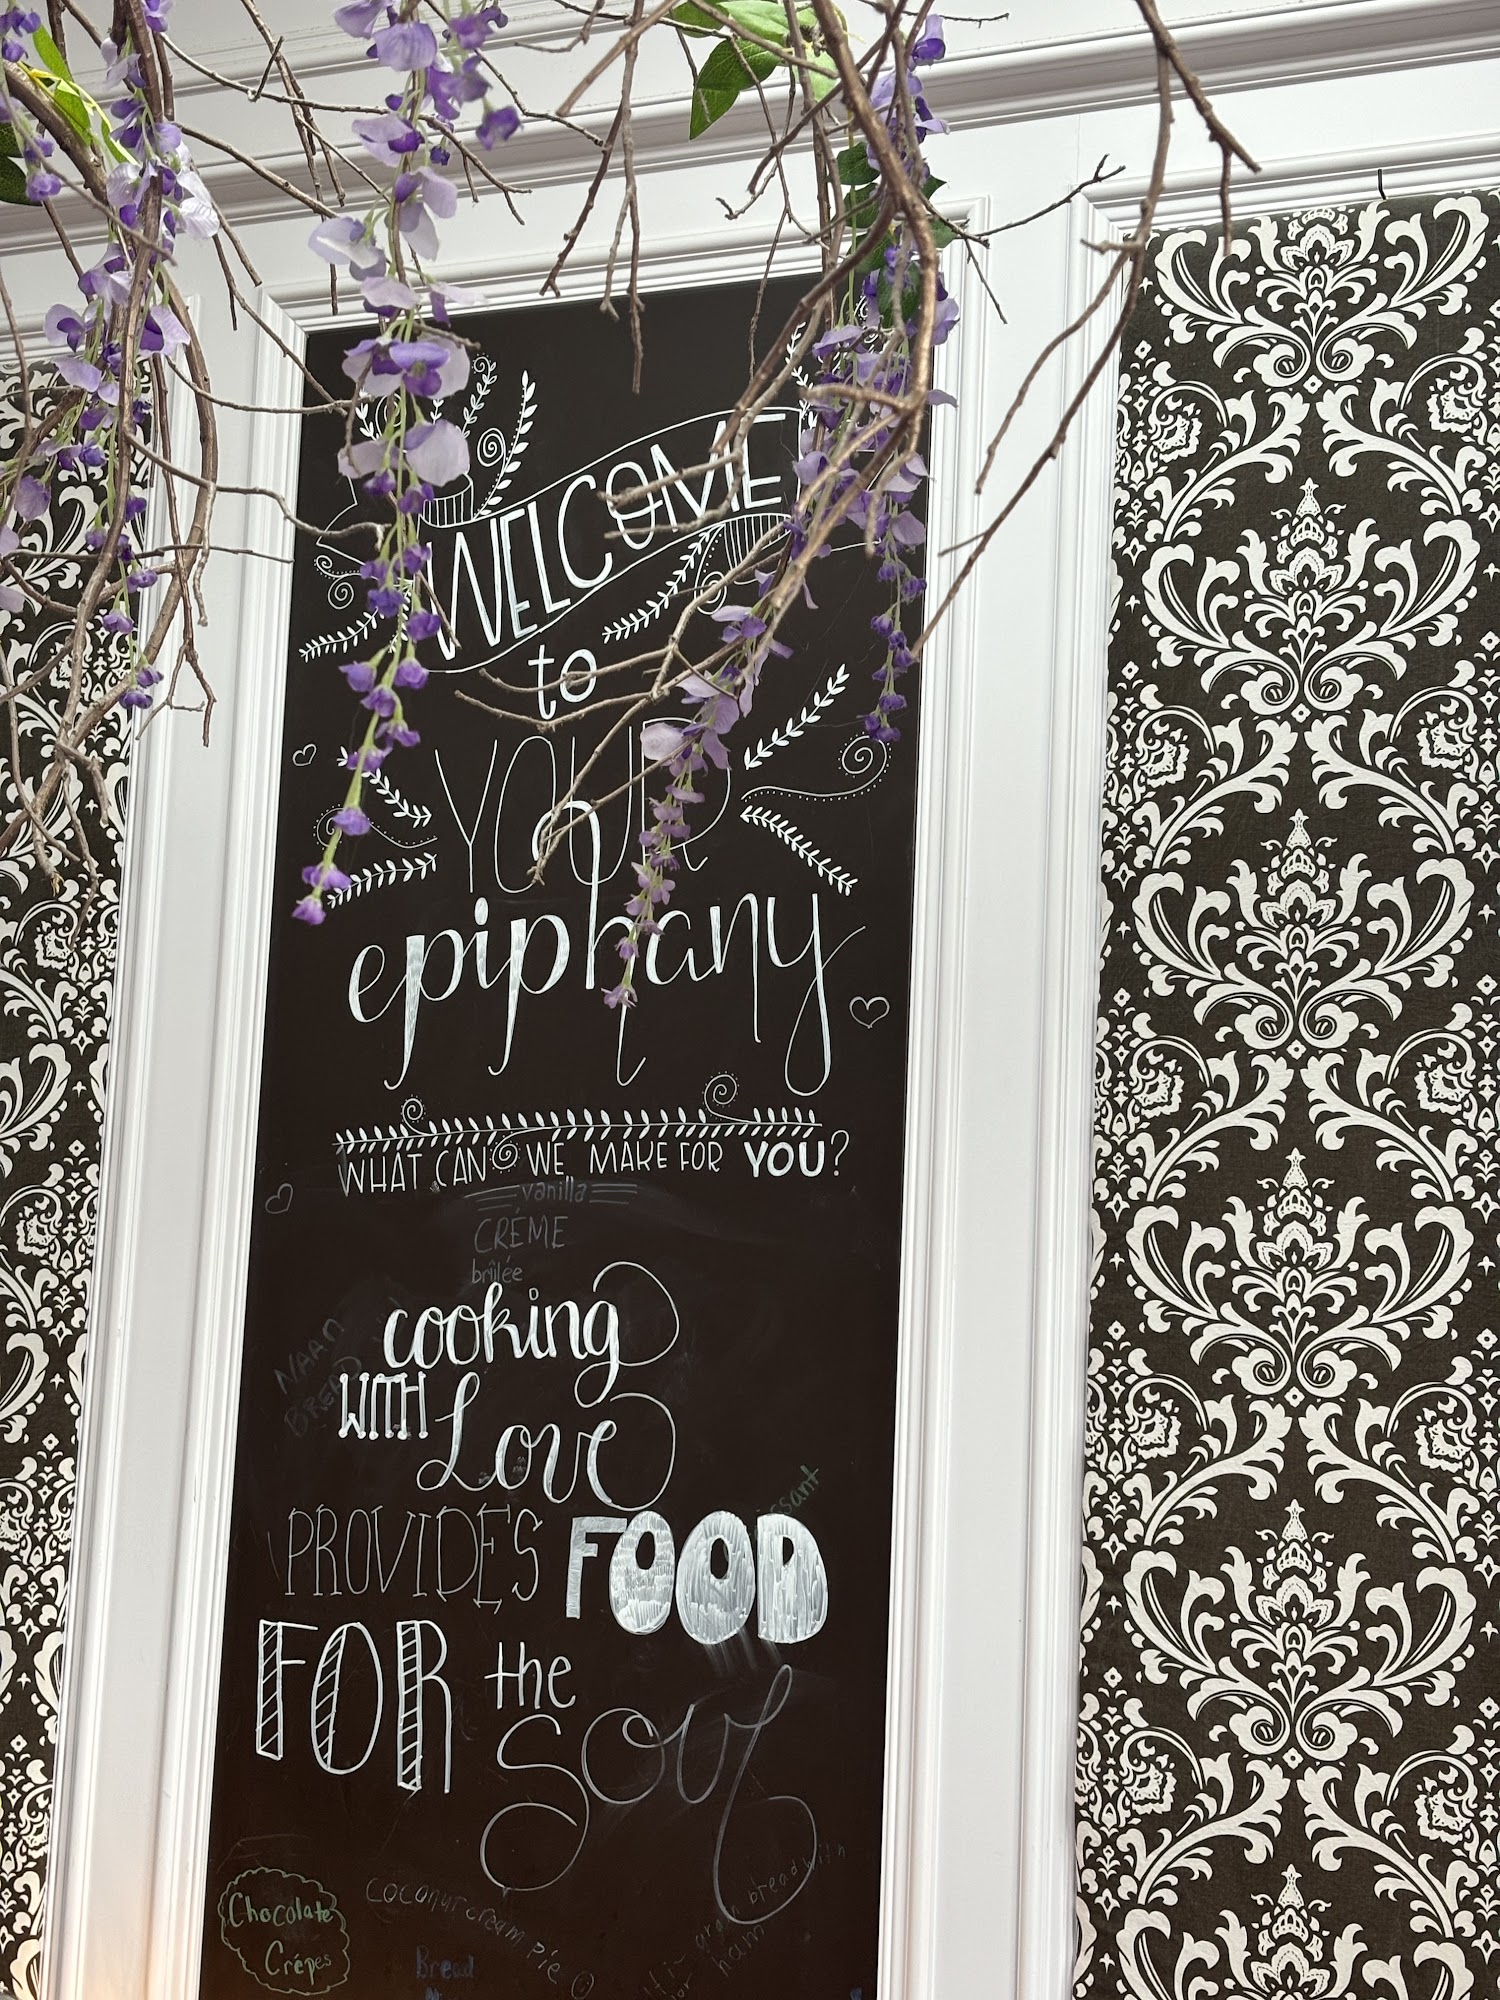 WELCOME
to
YOUR
epiphany
WHAT CAN WE MAKE FOR YOU?
vanilla
CRÉME
brûlée
cooking
NAAN
BREAD
WITH Love
PROVIDES FOOD
FOR the
Soul
Chocolate
Crépes
coconut cream pie
Bread
grain bread with
ham